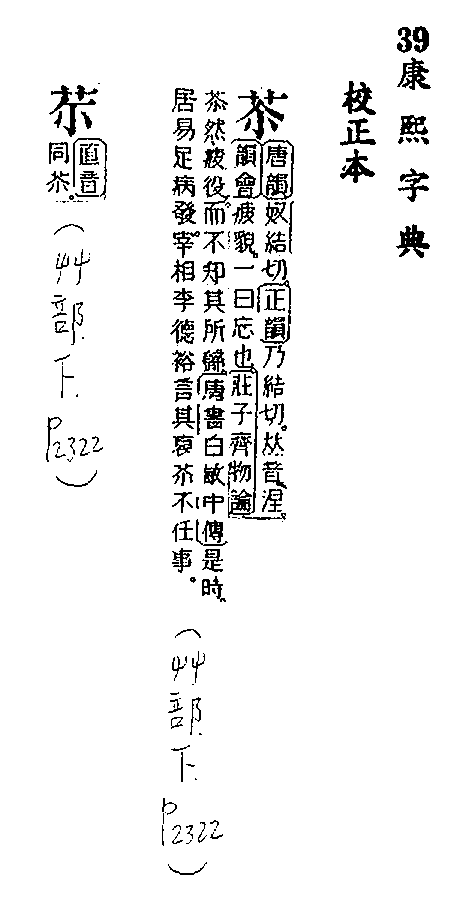 39康熙字典
校正本
苶
唐韻奴結切。正韻乃結切。𠀤音涅。
韻會疲貌。一曰忘也。莊子齊物論
苶然疲役。而不知其所歸唐書白敏中傳是時。
居易足病發。宰相李德裕言其衰苶不任事。
(艸部下 P2322)
直音
同苶。
(艸部下 P2322)